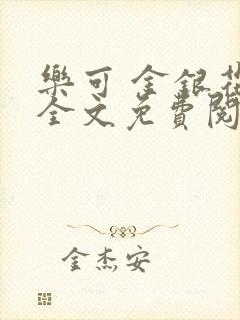 樂可 金銀花
全文免費閱
金杰安